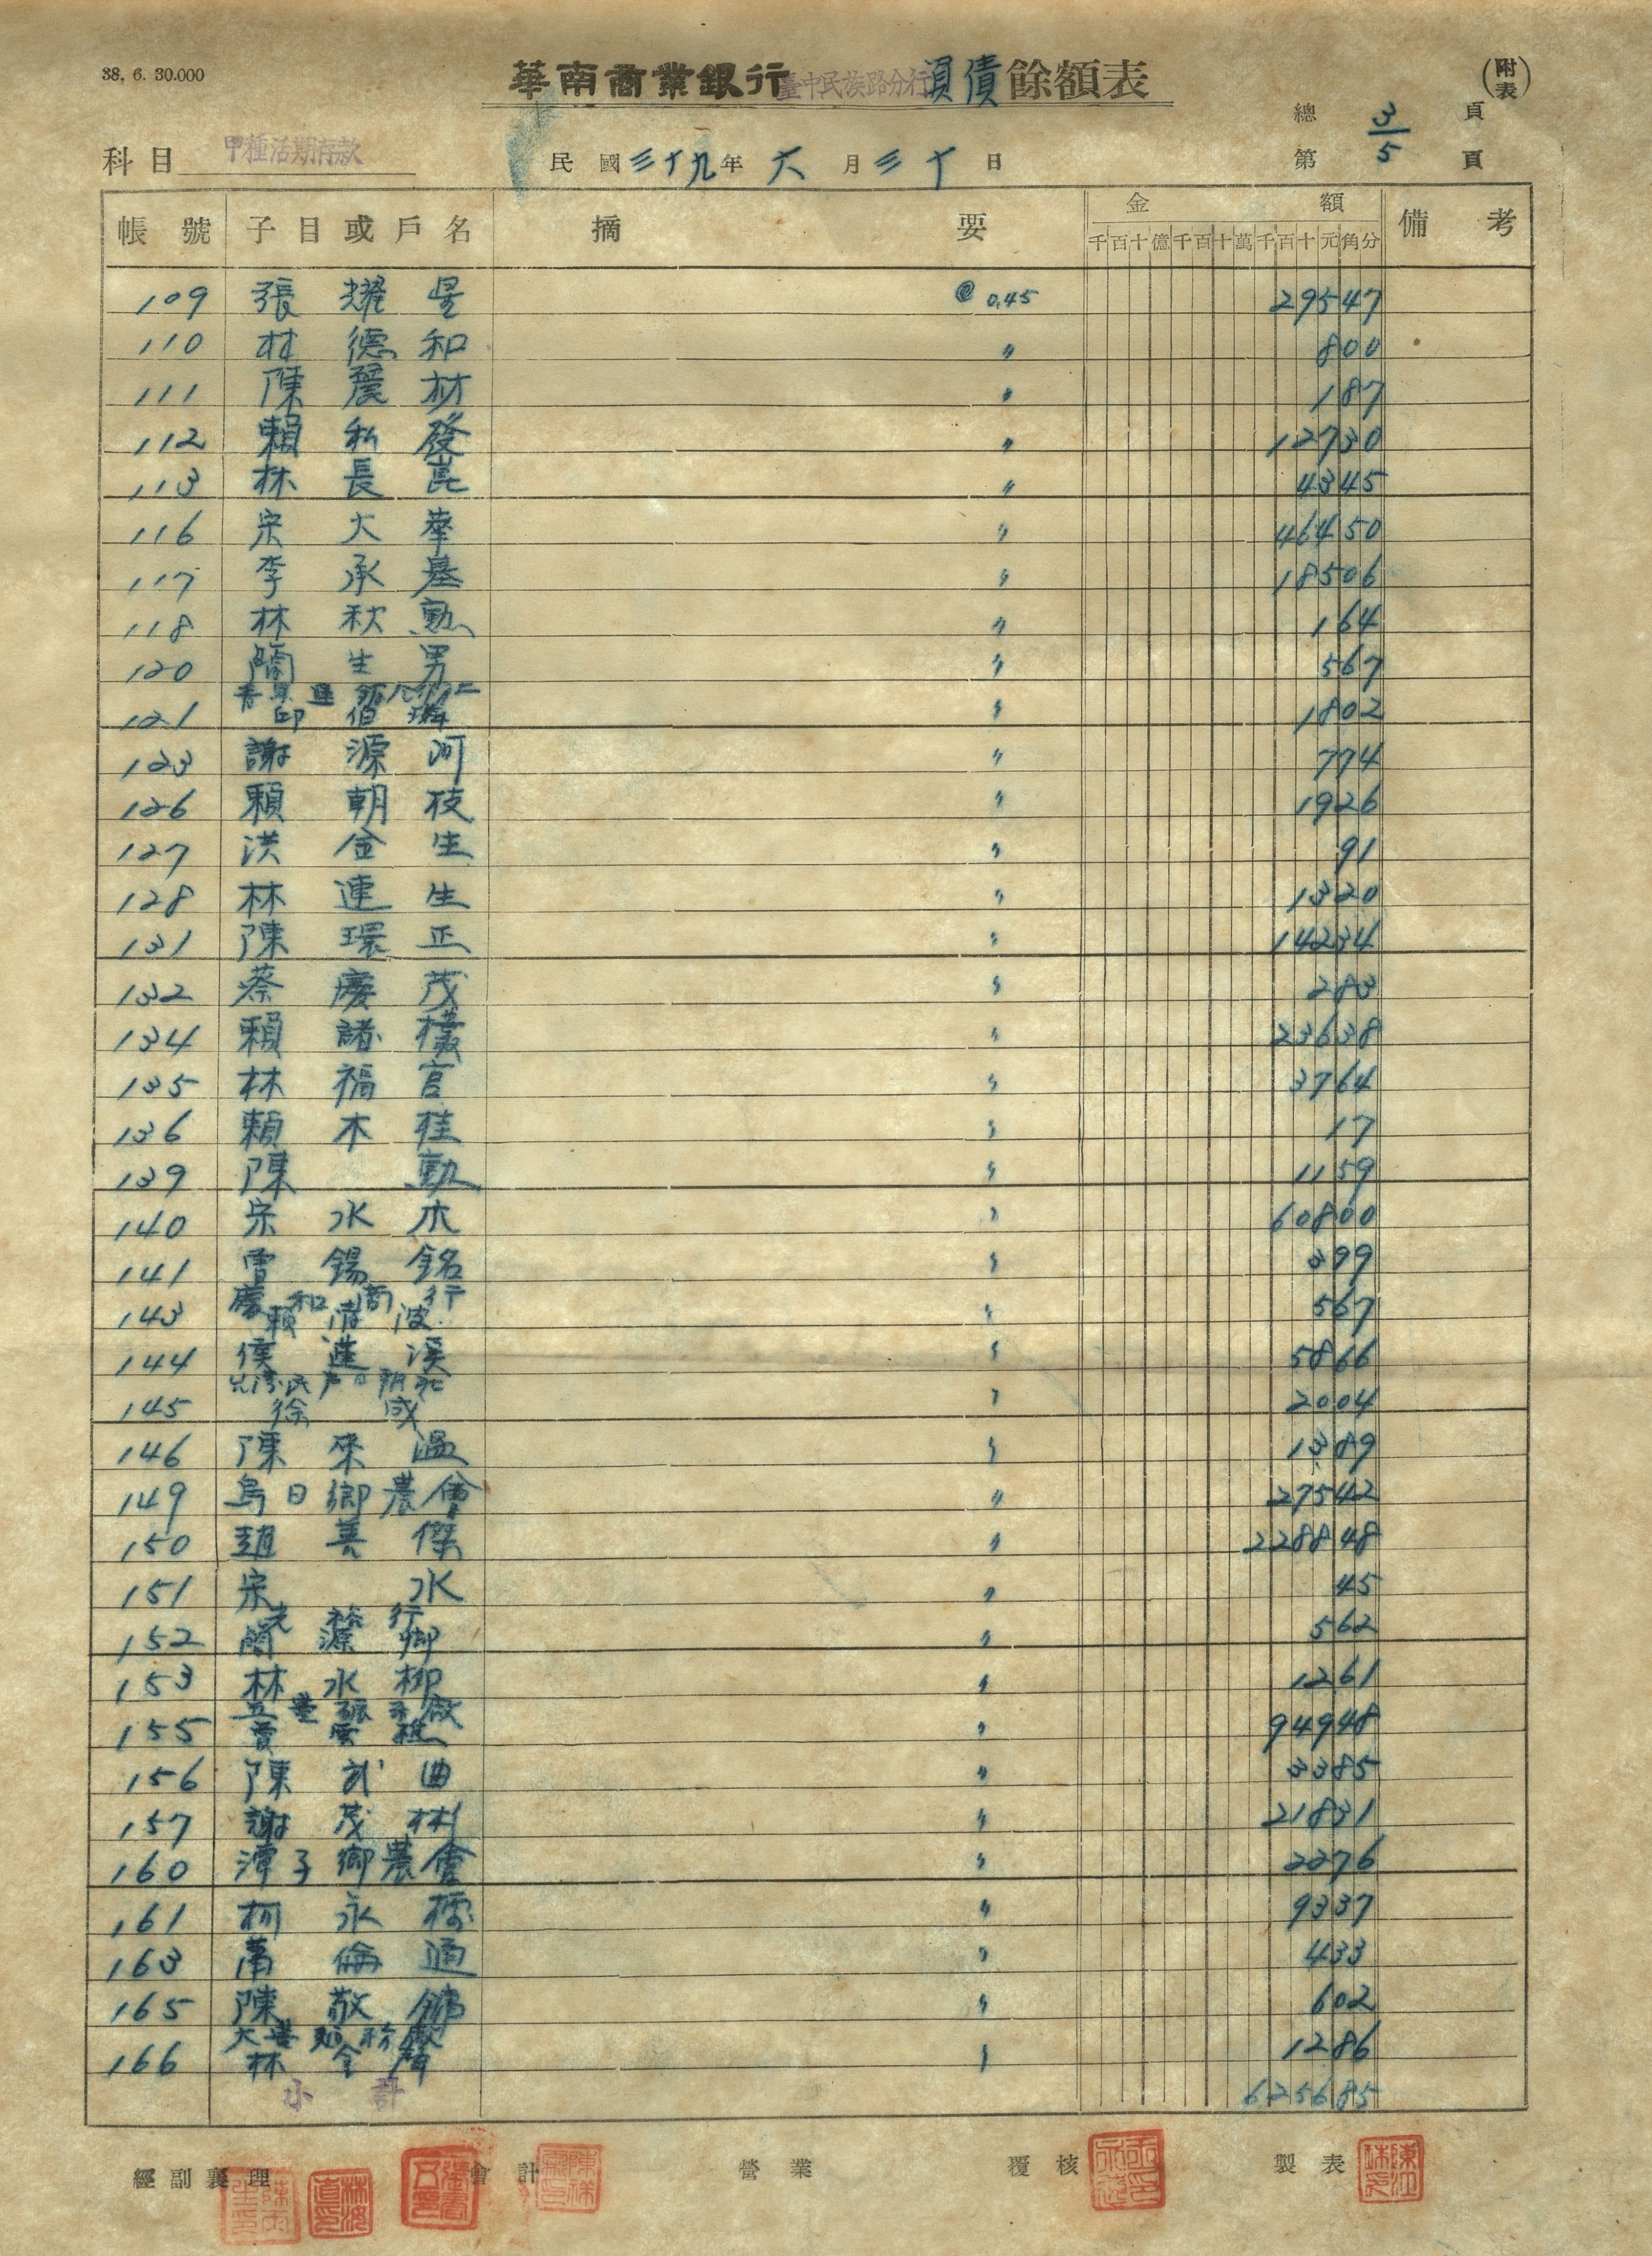 38. 6. 30.000
華南商業銀行臺中民族路分行負債餘額表 (附表)
總 3 頁
科目 甲種活期存款 民國三十九年六月三十日 第 5 頁
帳號 子目或戶名 摘要 金額 備考
千百十億千百十萬千百十元角分
109 張耀星 @0.45 29547
110 林德和 〃 800
111 陳麗材 〃 187
112 賴私發 〃 12730
113 林長崑 〃 4345
116 宋大華 〃 46450
117 李承基 〃 18506
118 林秋勳 〃 164
120 蘭生男 〃 567
121 邱伯 〃 1802
123 謝源河 〃 774
126 賴朝枝 〃 1926
127 洪金生 〃 91
128 林連生 〃 1320
131 陳環正 〃 14234
132 蔡慶茂 〃 283
134 賴諸 〃 23638
135 林福官 〃 3764
136 賴木桂 〃 17
139 陳勳 〃 1159
140 宋水木 〃 60800
141 曹錫銘 〃 399
慶和商行
143 賴清波 〃 567
144 侯蓮溪 〃 5866
145 徐成 〃 2004
146 陳來溫 〃 1389
149 烏日鄉農會 〃 27542
150 趙善傑 〃 228848
151 宋水 〃 45
光裕行
152 簡源卿 〃 562
153 林水柳 〃 1261
155 雲 〃 94948
156 陳武曲 〃 3385
157 謝茂林 〃 21831
160 潭子鄉農會 〃 2276
161 柯永 〃 9337
163 萬倫通 〃 433
165 陳敬 〃 602
166 林金 〃 1286
小計 625685
經副襄理 會計 營業 覆核 製表